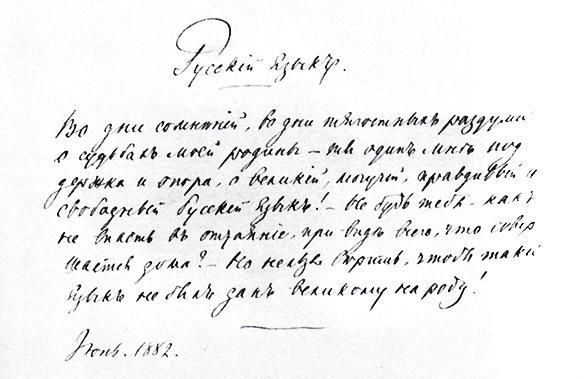 Русскій языкъ.
Во дни сомнѣній, во дни тягостныхъ раздумій
о судьбахъ моей родины – ты одинъ мнѣ под
держка и опора, о великій, могучій, правдивый и
свободный Русскій Языкъ! – Не будь тебя – какъ
не впасть въ отчаяніе, при видѣ всего, что совер
шается дома? – Но нельзя вѣрить, чтобы такой
языкъ не былъ данъ великому народу!
Іюнь. 1882.